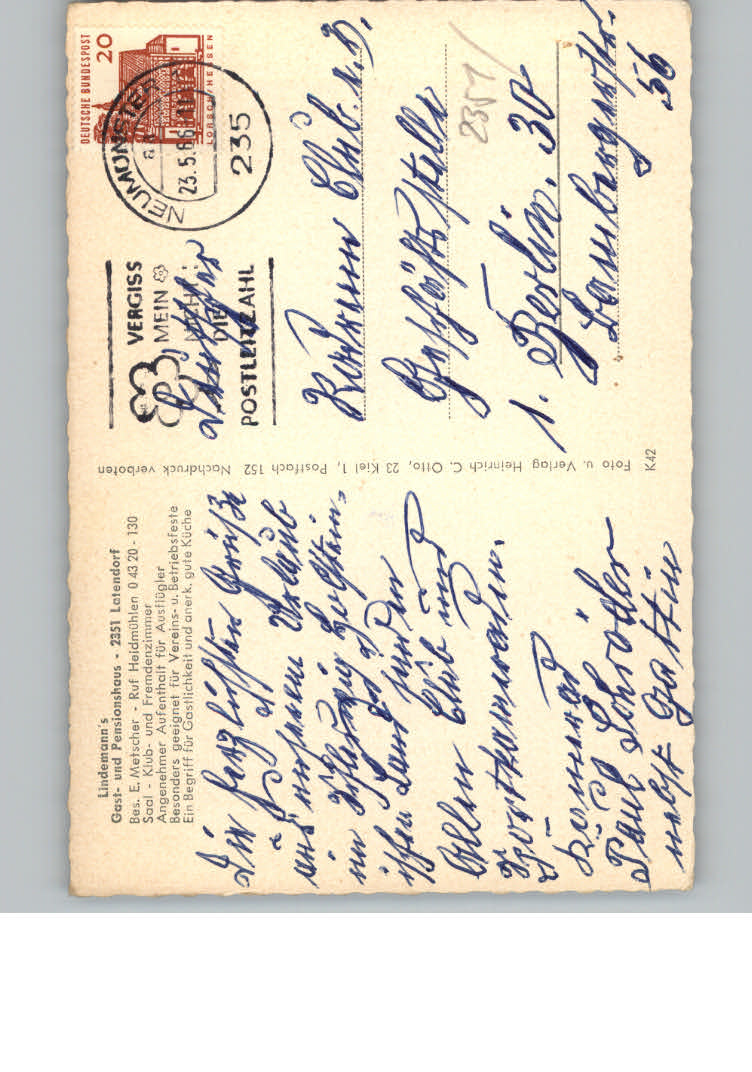 Lindemann's
Gast- und Pensionshaus - 2351 Latendorf
Bes. E. Metscher - Ruf Heidmühlen 0 43 20 - 130
Saal - Klub- und Fremdenzimmer
Angenehmer Aufenthalt für Ausflügler
Besonders geeignet für Vereins- u. Betriebsfeste
Ein Begriff für Gastlichkeit und anerk. gute Küche
Die herzlichsten Grüße
aus unserem Urlaub
im Schleswig Holstein-
ischen Land senden
Allen Club und
Sportkameraden.
Kamerad
Paul Schröder
nebst Gattin
Foto u. Verlag Heinrich C. Otto, 23 Kiel 1, Postfach 152 Nachdruck verboten
K42
DEUTSCHE BUNDESPOST
20
LORSCH/HESSEN
NEUMÜNSTER
23.5.66
235
VERGISS
MEIN
NICHT
DIE
POSTLEITZAHL
2351
Club. e.V.
Geschäftsstelle
1. Berlin. 30
56